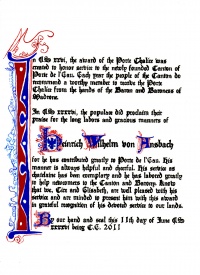 In AS xxxi, the award of the Porte Chalice was
created to honor service to the newly founded Canton of
Porte de l'Eau. Each year the people of the Canton do
recommend a worthy member to receive the Porte
Chalice from the hands of the Baron and Baroness of
In AS xxxxi, the populace did proclaim their
praise for the long labors and generous manners of
Heinrich Wilhelm von Ansbach
for he has contributed greatly to Porte de l'Eau. His
manner is always helpful and cheerful. His service as
chatelaine has been exemplary and he has labored greatly
to help newcomers to the Canton and Barony. Know
that we, and Elizabeth, are well pleased with his
service and are minded to present him with this award
in grateful recognition of his devoted service to our lands.
By our hand and seal this 11th day of June AS
xxxxvi being C.E. 2011